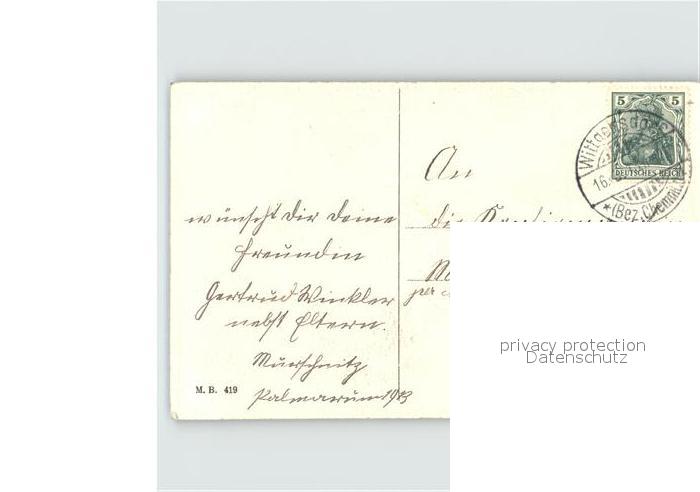 5 5
DEUTSCHES REICH
Wittgensdorf
16.
*(Bez. Chemnitz)
An
die
wünscht Dir Deine
Freundin
Gertrud Winkler
nebst Eltern.
Murschnitz
Palmarum 1913
M. B. 419
per
privacy protection
Datenschutz